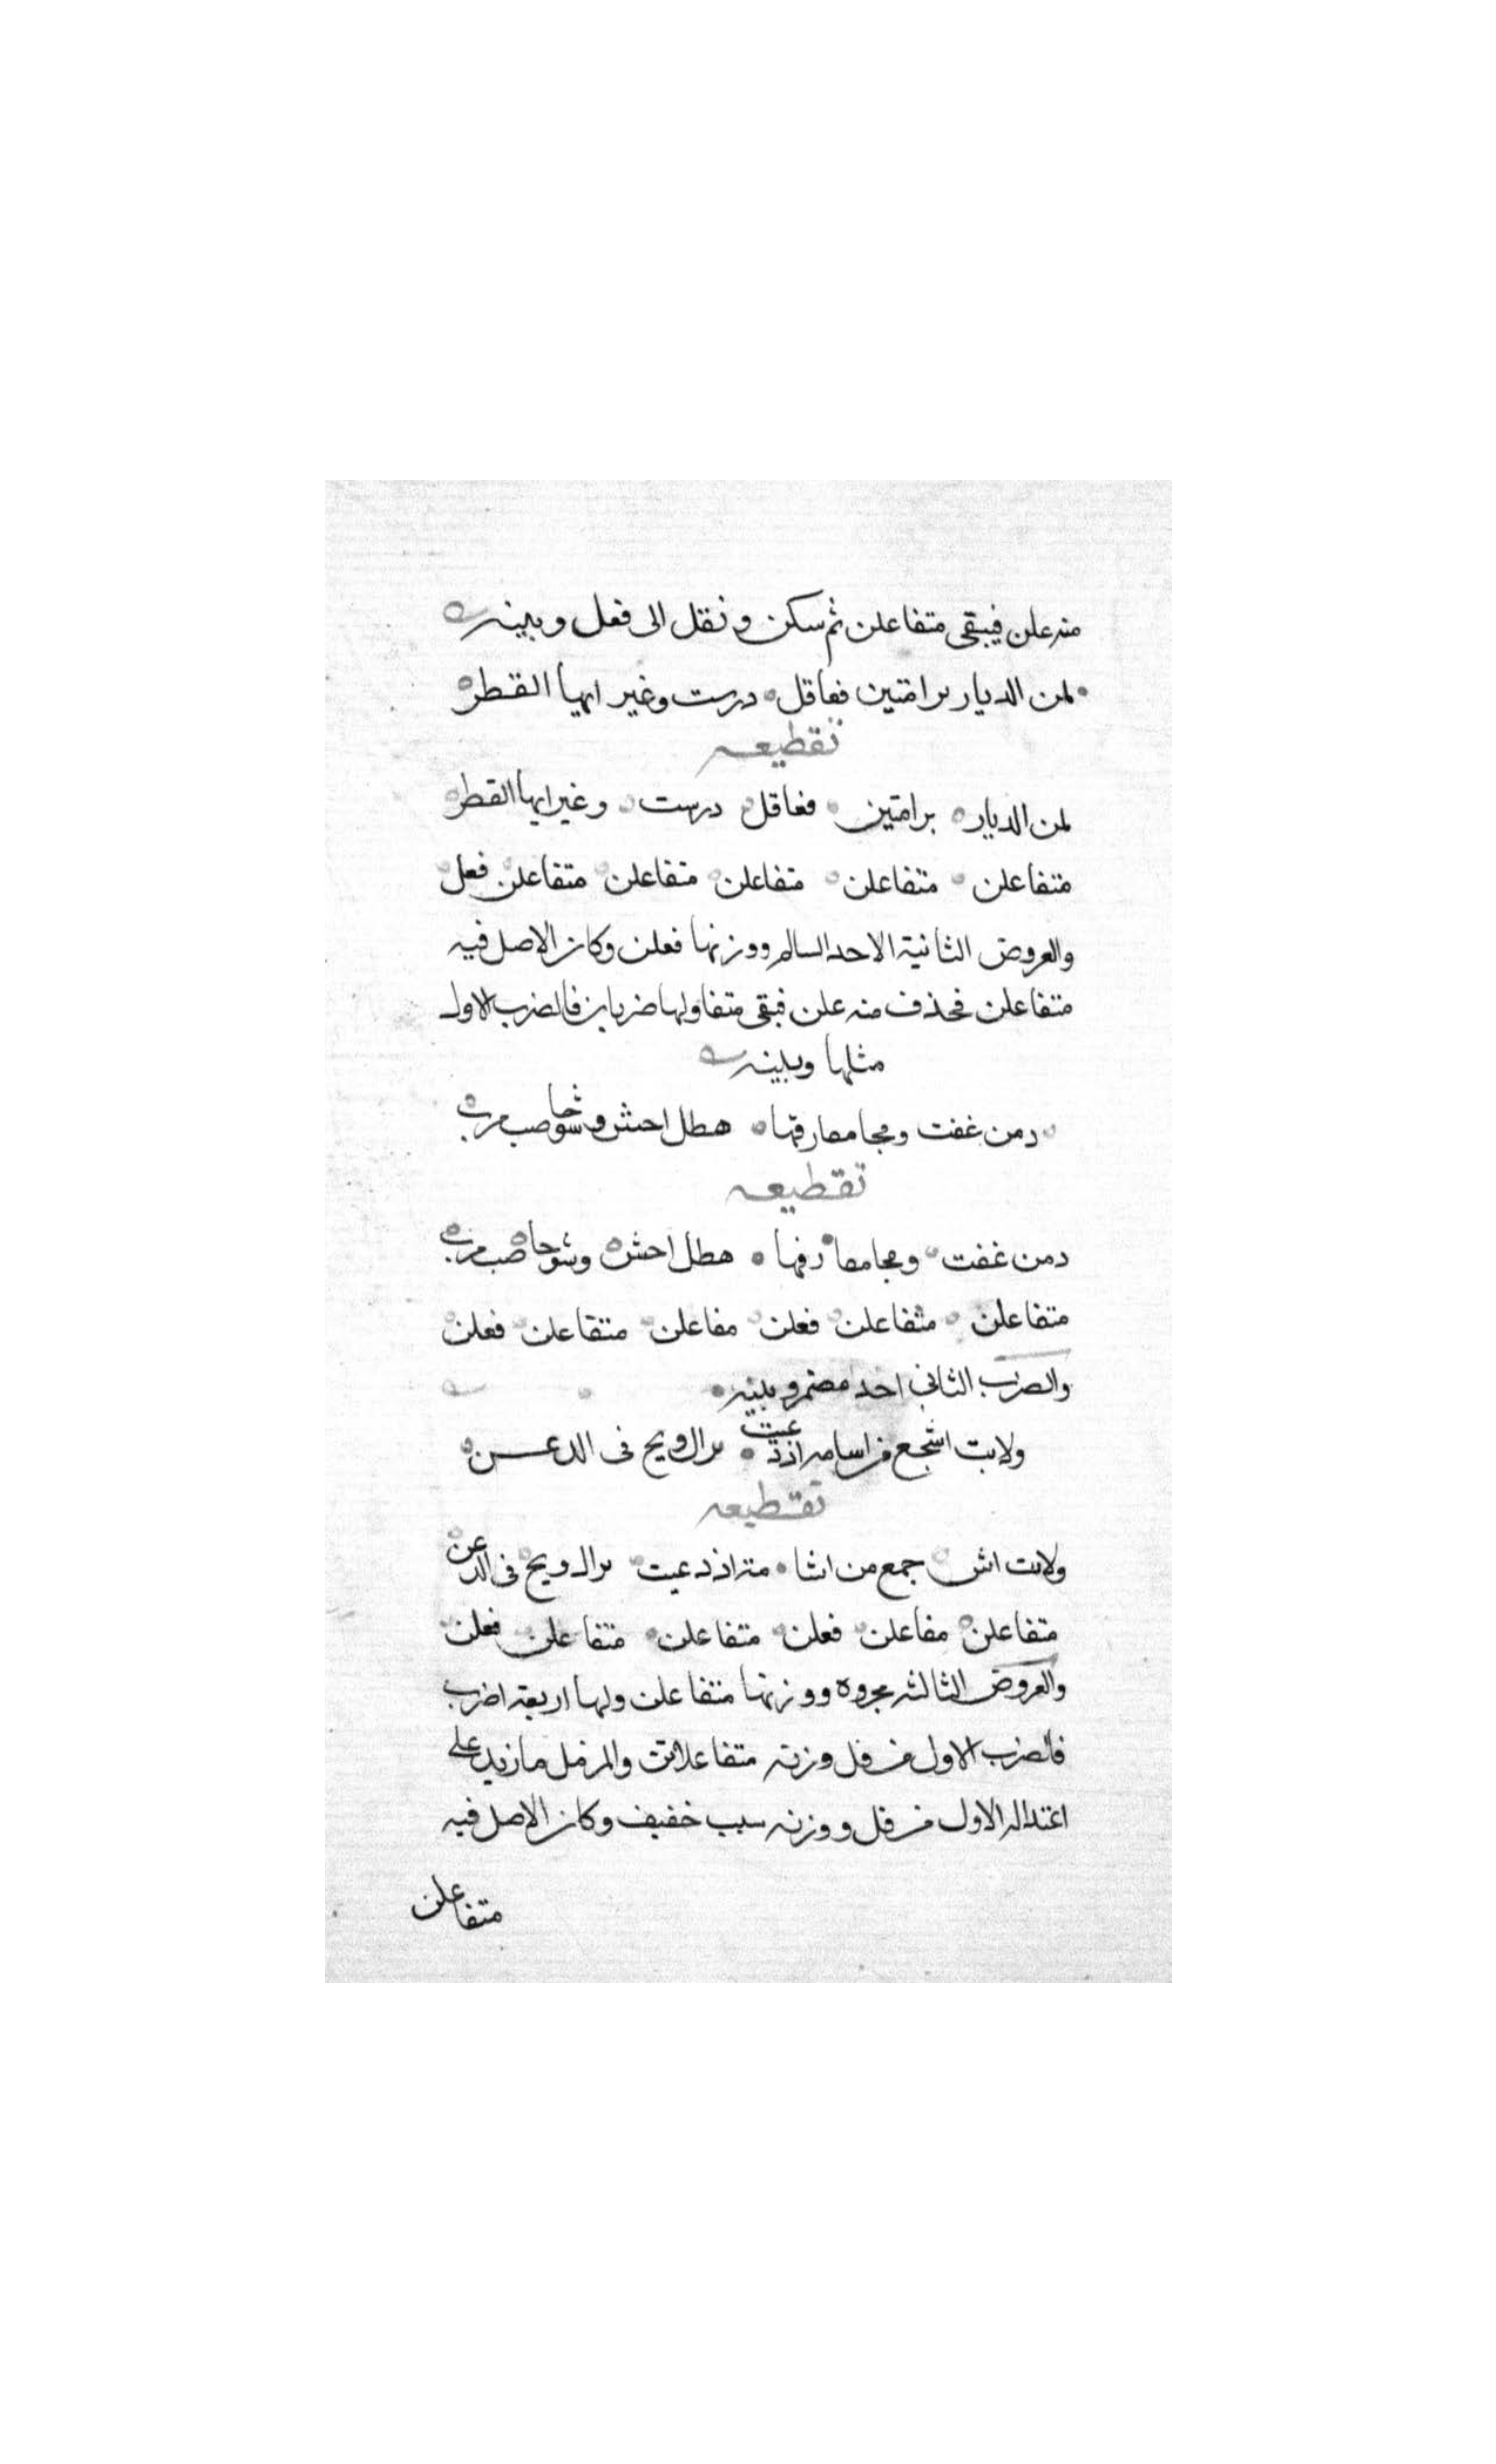 منه علن فيبقى متفاعلن ثم سكن ونقل الى فعل وبيته
لمن الديار برامتين فعاقل درست وغير ايها القطر
تقطيعه
لمن الديار برامتين فعاقل درست وغير ايها القطر
متفاعلن متفاعلن متفاعلن متفاعلن متفاعلن فعل
والعروض الثانية الاحد السالم ووزنها فعلن وكان الاصل فيه
متفاعلن فحذف منه علن فبقى متفا ولها ضربان فالضرب الاول
مثلها وبيته
دمن غفت ومحا معارفها هطل احش
تقطيعه
دمن غفت ومحا معا رفها هطل احش
متفاعلن متفاعلن فعلن مفاعلن متفاعلن فعلن
والضرب الثانى احد مضمر وبيته
ولانت اشجع من اسامه اذ فى الدعـــن
تقطيعه
ولانت اش جمع من اشا مته اذ دعيت فى الدعن
متفاعلن مفاعلن فعلن متفاعلن متفاعلن فعلن
والعروض الثالثه مجروه ووزنها متفاعلن ولها اربعة اضرب
فالضرب الاول مرفل وزنه متفاعلاتن والمرفل مازيد على
اعتداله الاول مرفل ووزنه سبب خفيف وكان الاصل فيه
متفاعلن